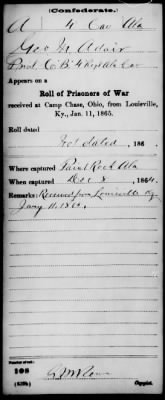 (Confederate.)
A 4 Cav Ala
Geo M Adair
Pvt, Co B 4 Reg't Ala Cav
Appears on a
Roll of Prisoners of War
received at Camp Chase, Ohio, from Louisville,
Ky., Jan. 11, 1865.
Roll dated
Not dated, 186 .
Where captured Paint Rock Ala
When captured Dec 8, 1864.
Remarks: Received from Louisville Ky
Jany 11, 1865.
Number of roll:
108
(639b) Copyist.